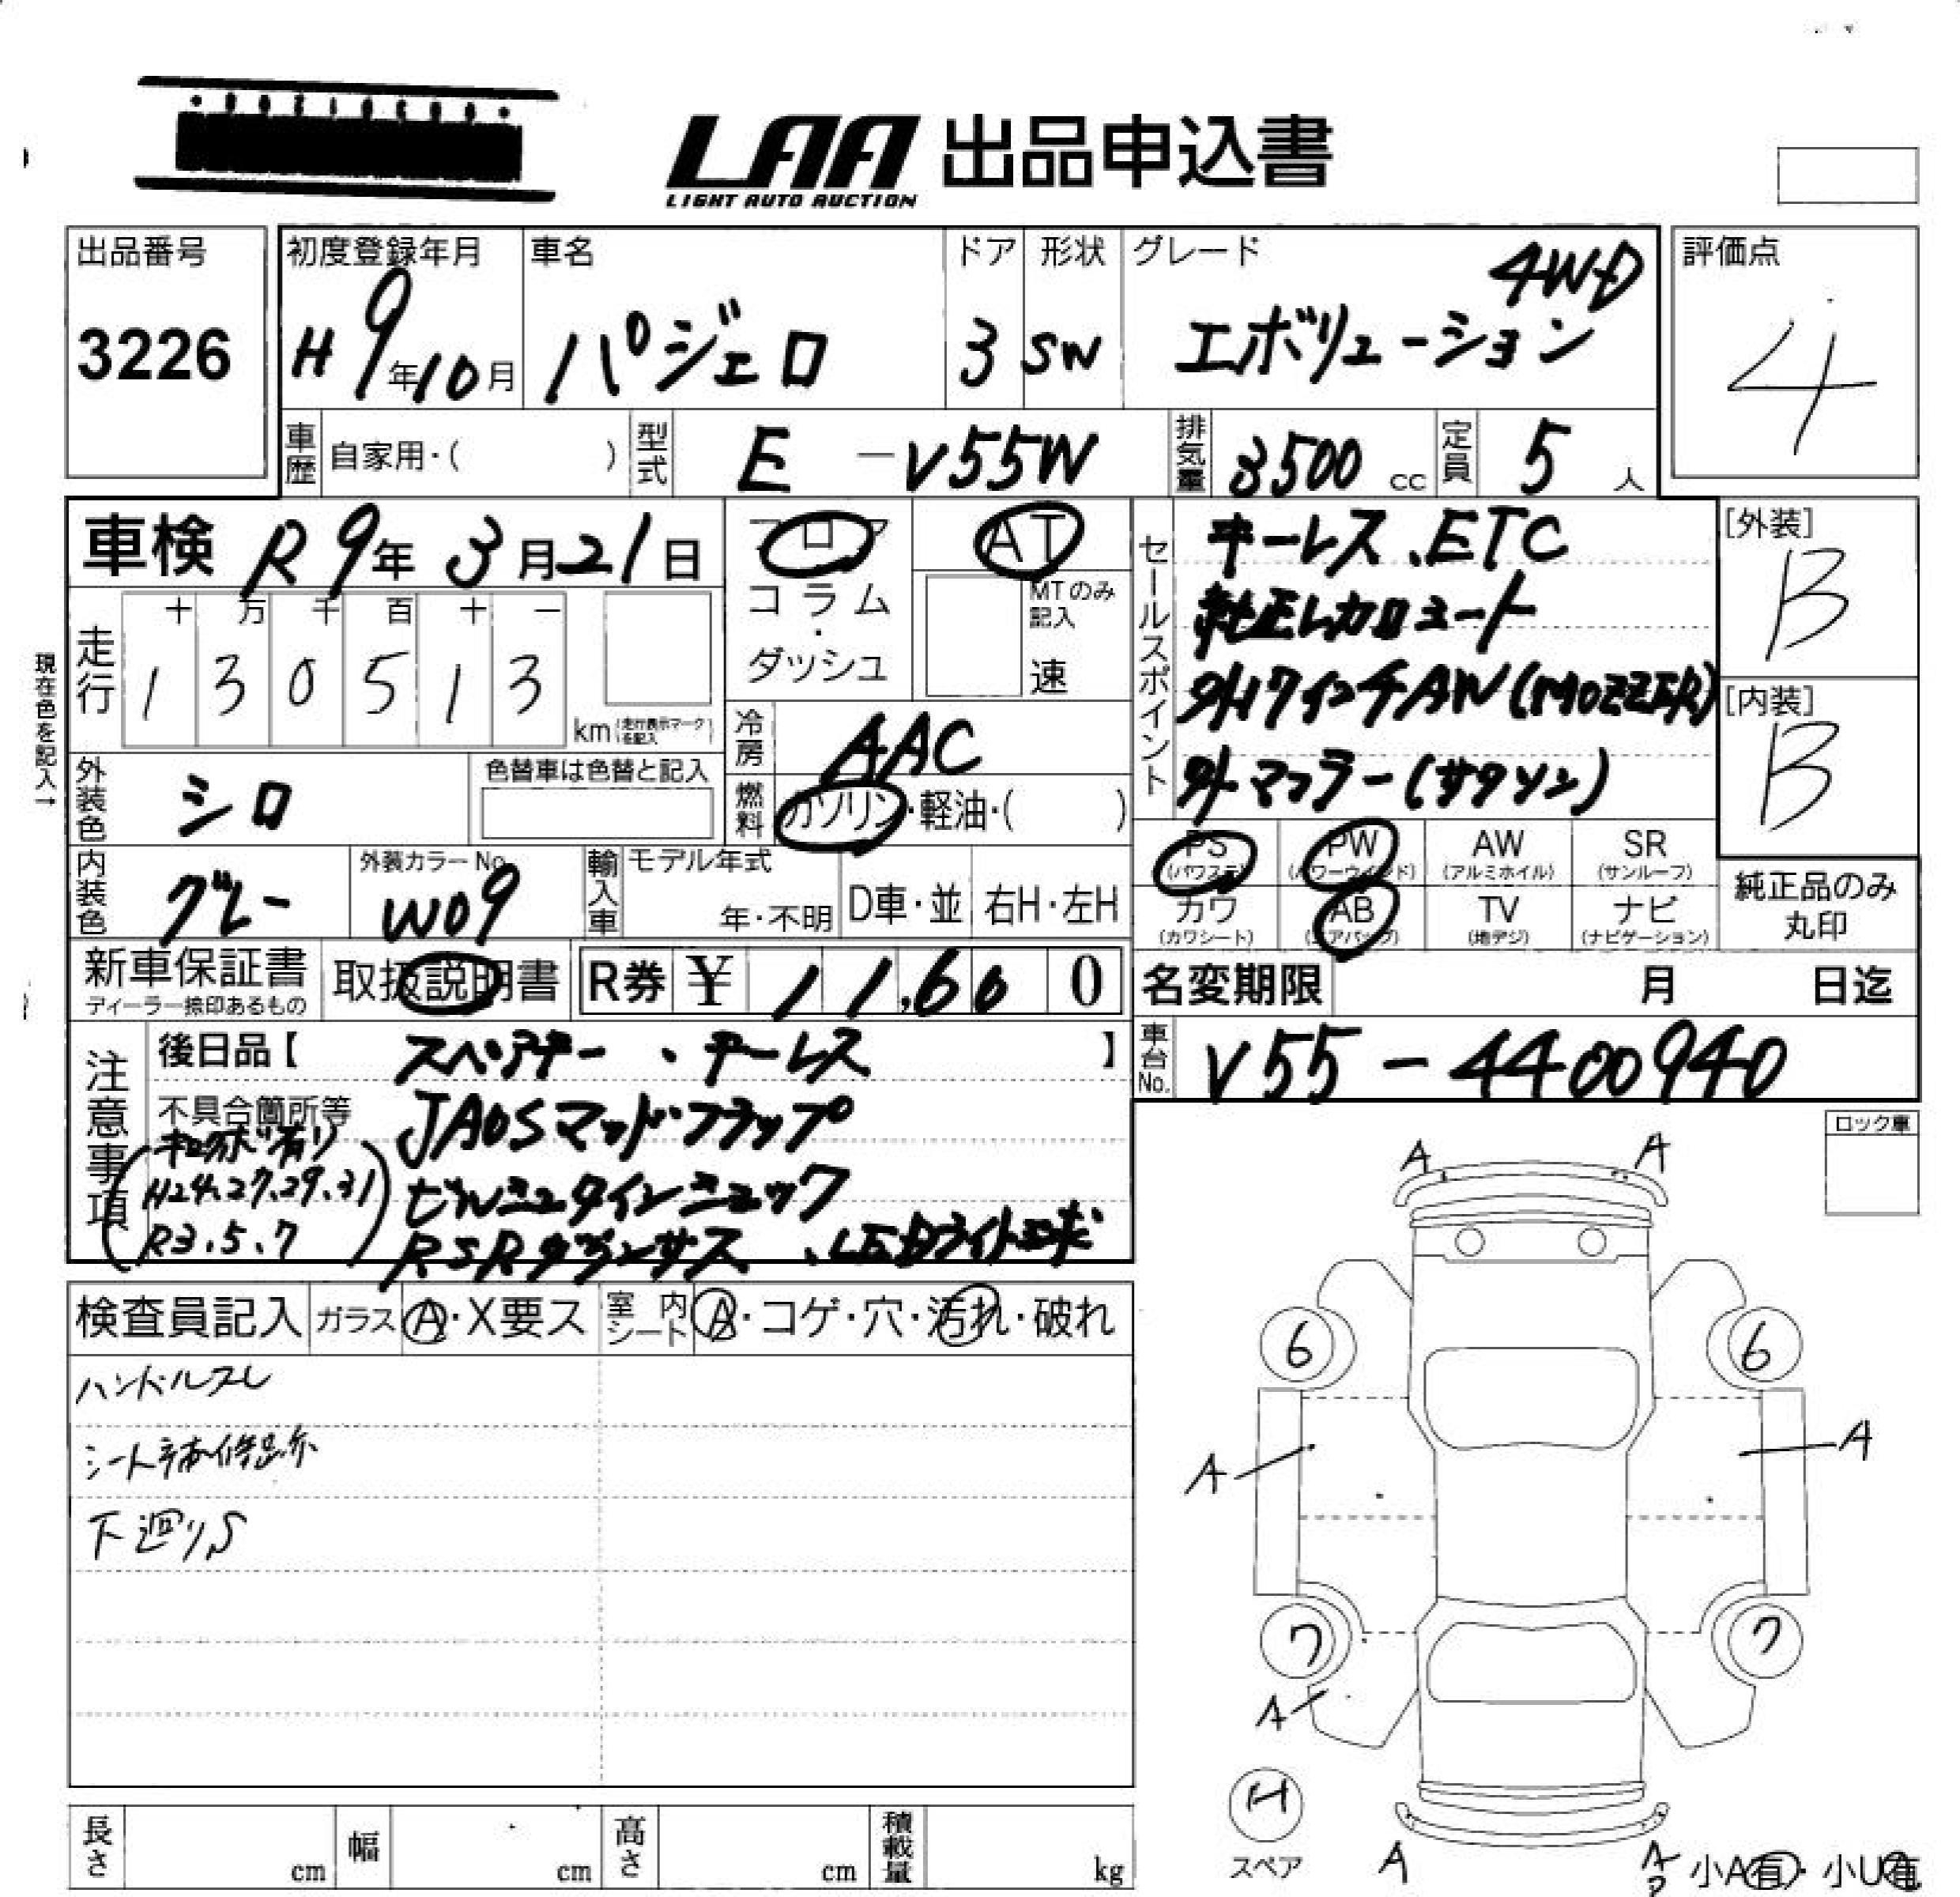 LAA 出品申込書
LIGHT AUTO AUCTION
出品番号
3226
初度登録年月
H9年10月
車名
パジェロ
ドア
3
形状
SW
グレード
4WD
エボリューション
評価点
4
車歴
自家用・( )
型式
E -V55W
排気量
3500 cc
定員
5 人
車検 R9年 3月21日
フロア
コラム・
ダッシュ
AT
MTのみ
記入
速
セールスポイント
キーレス、ETC
純正レカロシート
外17インチAW(MOZZER)
外マフラー(サクソン)
[外装]
B
[内装]
B
現在色を記入→
走行
十 万 千 百 十 一
1 3 0 5 1 3
km(走行表示マークを記入)
冷房
AAC
燃料
ガソリン・軽油・( )
外装色
シロ
色替車は色替と記入
内装色
グレー
外装カラーNo.
W09
輸入車
モデル年式
年・不明
D車・並
右H・左H
PS
(パワステ)
PW
(パワーウィンド)
AW
(アルミホイル)
SR
(サンルーフ)
カワ
(カワシート)
AB
(エアバッグ)
TV
(地デジ)
ナビ
(ナビゲーション)
純正品のみ
丸印
新車保証書
ディーラー捺印あるもの
取扱説明書
R券 ¥ 11,600
名変期限 月 日迄
車台No.
V55-4400940
注意事項
後日品【 スペアキー・キーレス 】
不具合箇所等
JAOSマッドフラップ
(キロクボ有り
H24.27.29.31
R3.5.7)
ビルシュタインショック
RSRダウンサス、LEDライト球
ロック車
検査員記入
ガラス
A・X要ス
室内
シート
A・コゲ・穴・汚れ・破れ
ハンドルスレ
シート補修跡
下廻りS
A A
6 6
A A
7 7
A
H
スペア
A A
小A有・小U有
長さ cm
幅 cm
高さ cm
積載量 kg